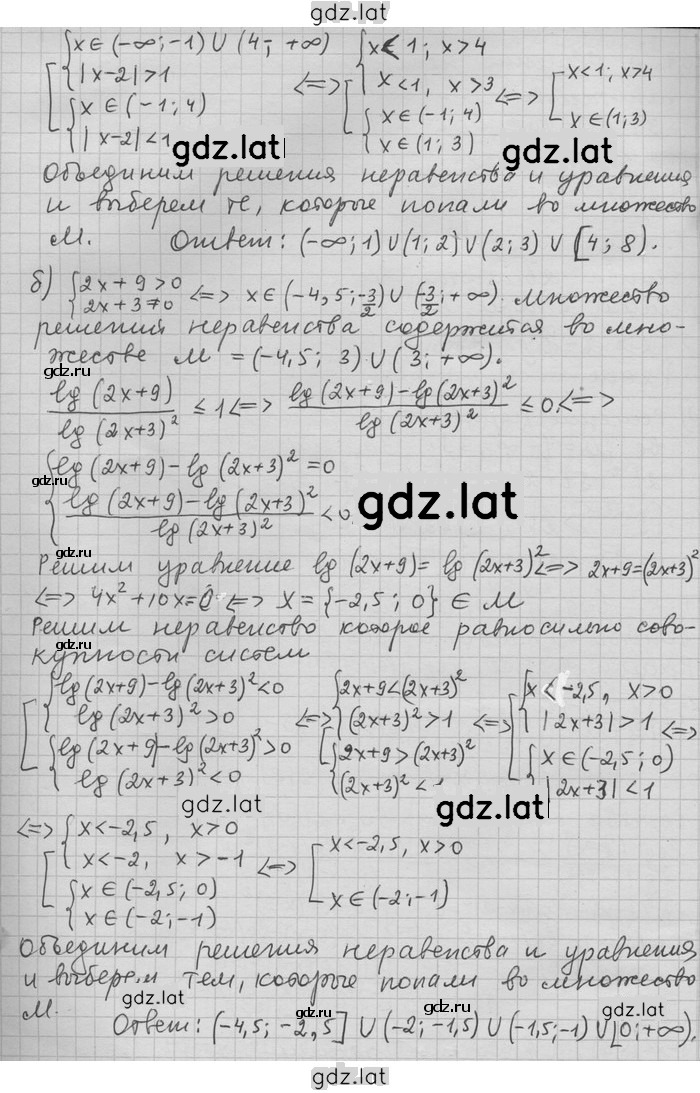 gdz.lat
[ { x ∈ (-∞; -1) ∪ (4; +∞)
{ |x-2| > 1
{ x ∈ (-1; 4)
{ |x-2| < 1
<=> [ { x < 1; x > 4
{ x < 1, x > 3
{ x ∈ (-1; 4)
{ x ∈ (1; 3)
<=> [ x < 1; x > 4
x ∈ (1; 3)
gdz.lat gdz.lat
Объединим решения неравенства и уравнения
и выберем те, которые попали во множество
M. Ответ: (-∞; 1) ∪ (1; 2) ∪ (2; 3) ∪ [4; 8).
б) { 2x + 9 > 0
{ 2x + 3 ≠ 0 <=> x ∈ (-4,5; -3/2) ∪ (-3/2; +∞) множество
решений неравенства содержится во мно-
жестве M = (-4,5; 3) ∪ (3; +∞).
gdz.lat
lg (2x+9) / lg (2x+3)² ≤ 1 <=> lg (2x+9) - lg (2x+3)² / lg (2x+3)² ≤ 0 <=>
{ lg (2x+9) - lg (2x+3)² = 0
{ lg (2x+9) - lg (2x+3)² / lg (2x+3)² < 0
gdz.ru gdz.lat
gdz.ru gdz.ru
Решим уравнение lg (2x+9) = lg (2x+3)² <=> 2x+9 = (2x+3)²
<=> 4x² + 10x = 0 <=> X = {-2,5; 0} ∈ M
Решим неравенство которое равносильно сово-
купности систем
[ { lg (2x+9) - lg (2x+3)² < 0
{ lg (2x+3)² > 0
{ lg (2x+9) - lg (2x+3)² > 0
{ lg (2x+3)² < 0
<=> [ { 2x+9 < (2x+3)²
{ (2x+3)² > 1
{ 2x+9 > (2x+3)²
{ (2x+3)² <
<=> [ { x < -2,5, x > 0
{ |2x+3| > 1
{ x ∈ (-2,5; 0)
{ |2x+3| < 1
gdz.lat gdz.lat
<=> [ { x < -2,5, x > 0
{ x < -2, x > -1
{ x ∈ (-2,5; 0)
{ x ∈ (-2; -1)
<=> [ x < -2,5, x > 0
x ∈ (-2; -1)
Объединим решения неравенства и уравнения
и выберем тем, которые попали во множество
gdz.lat gdz.lat
M. Ответ: (-4,5; -2,5] ∪ (-2; -1,5) ∪ (-1,5; -1) ∪ [0; +∞).
gdz.lat